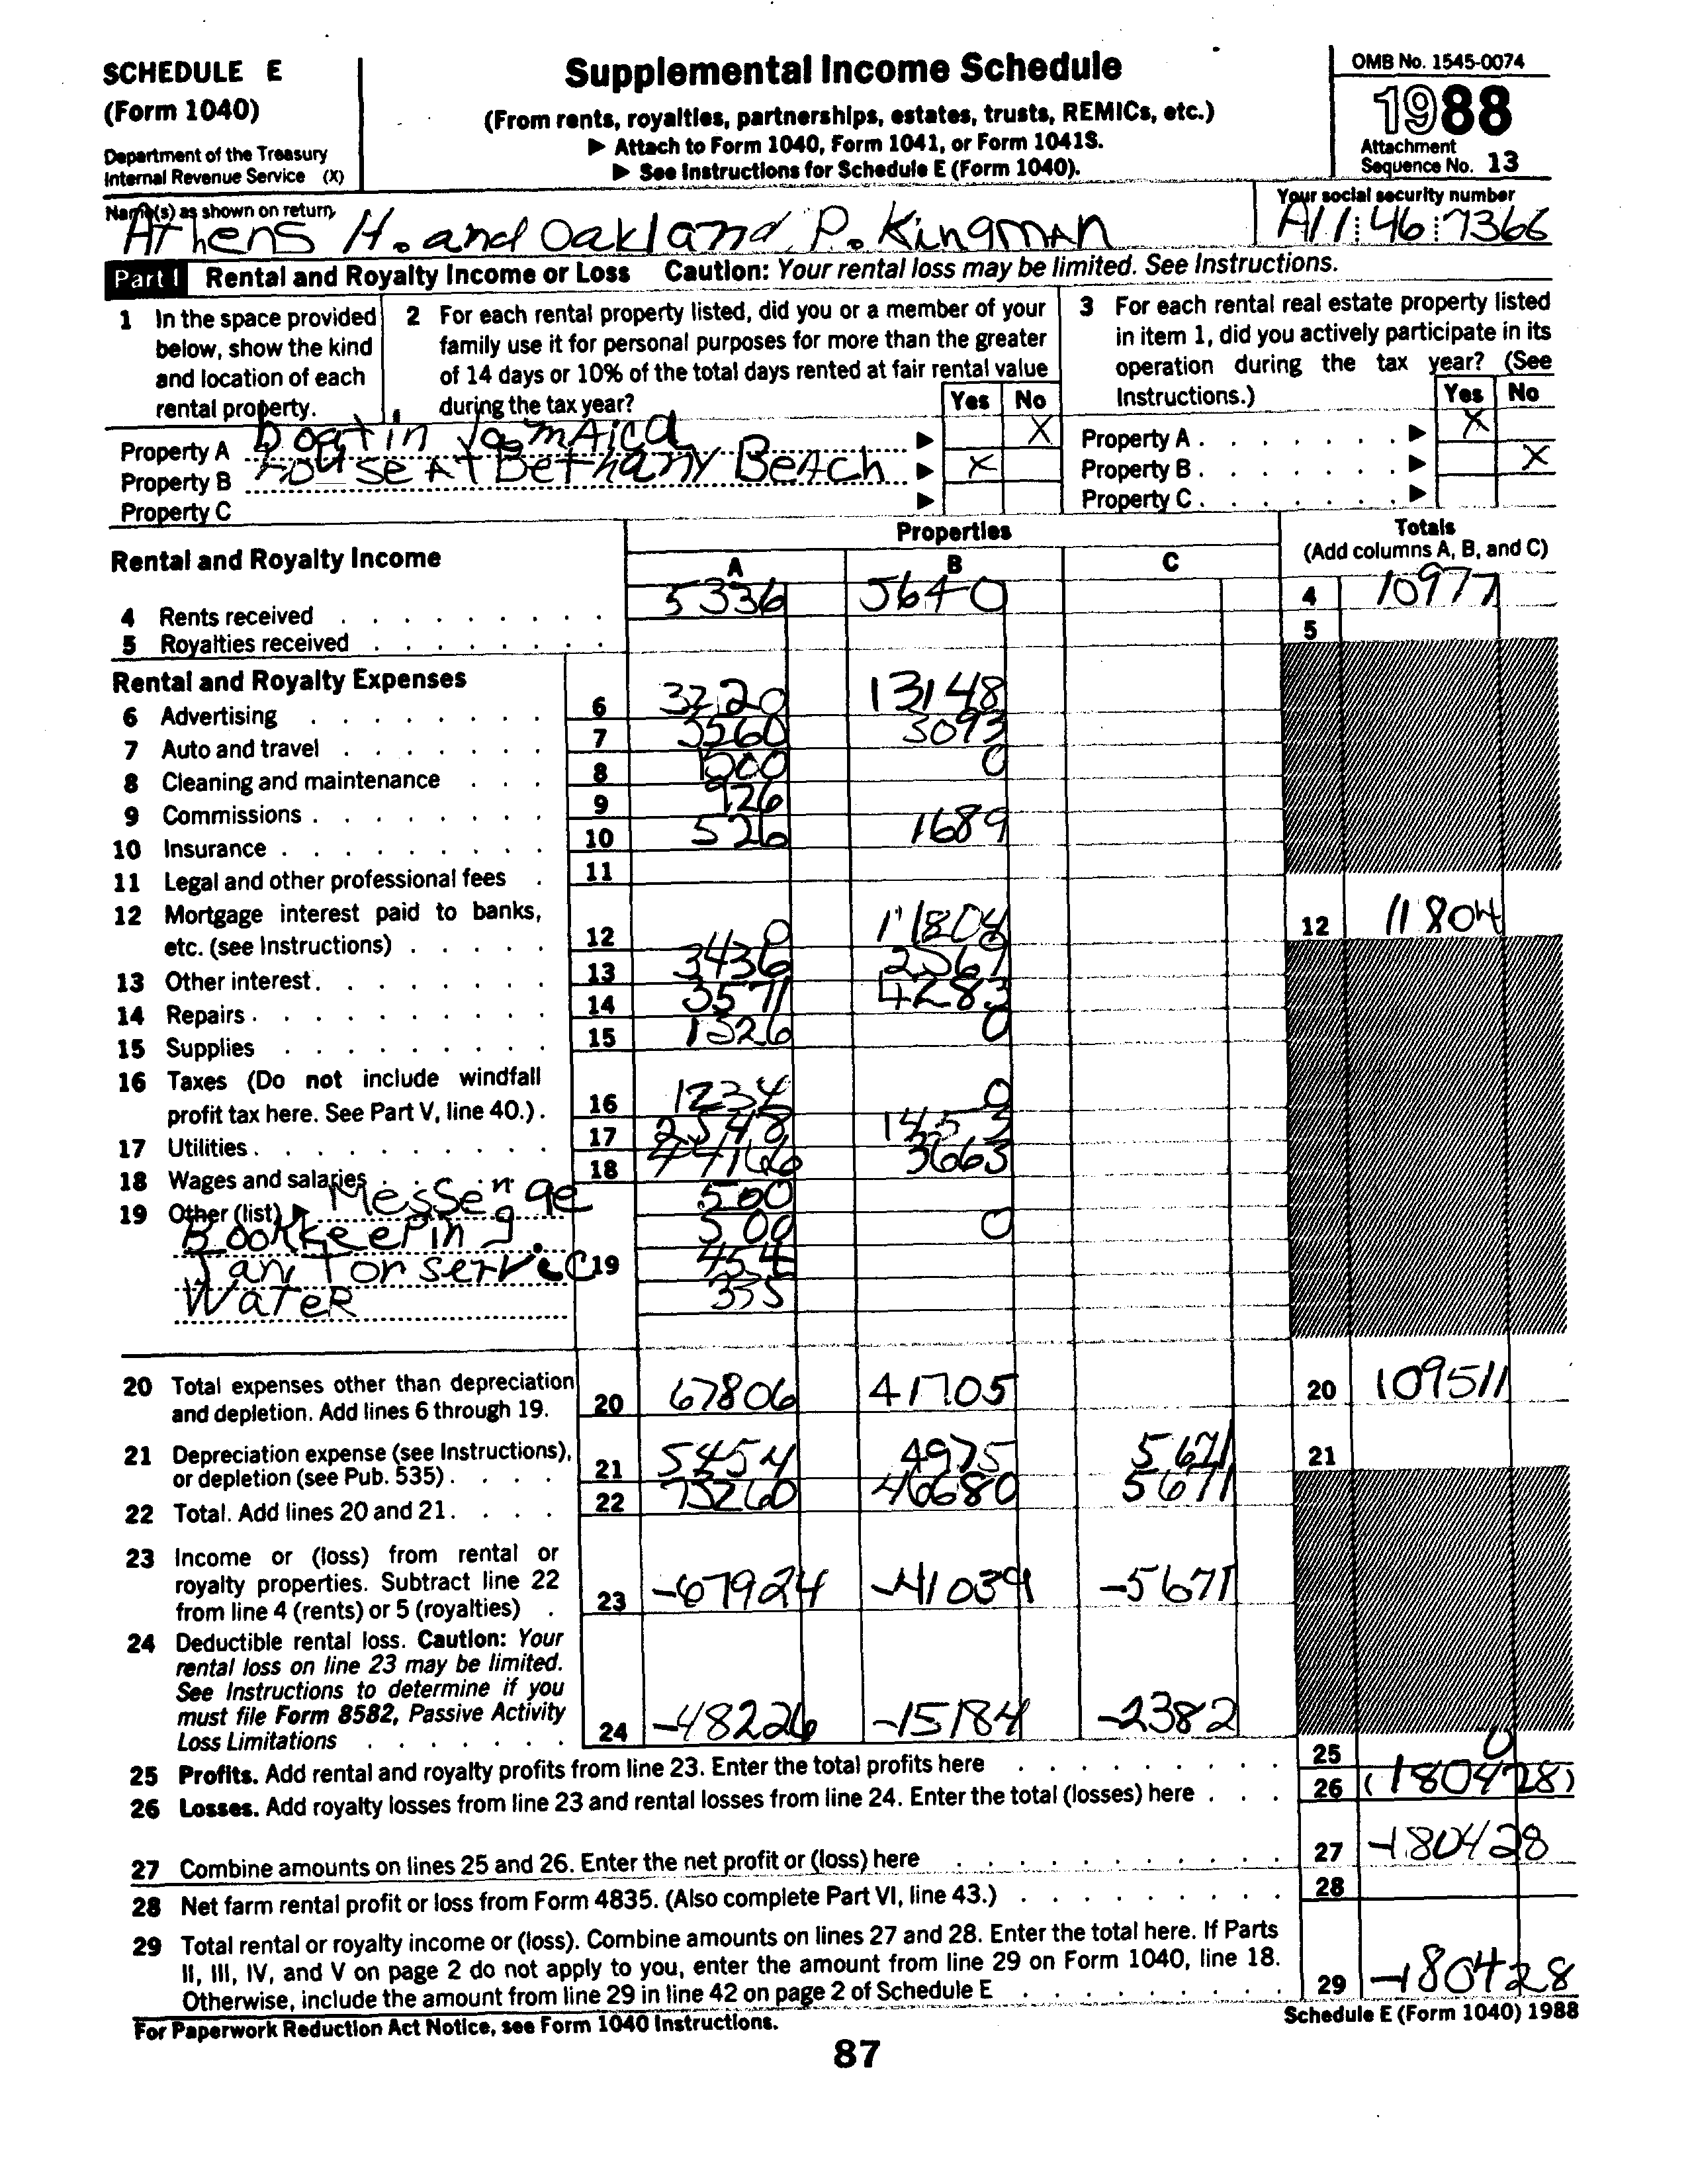 SCHEDULE E
(Form 1040)
Department of the Treasury
Internal Revenue Service (X)
Supplemental Income Schedule
(From rents, royalties, partnerships, estates, trusts, REMICs, etc.)
▶ Attach to Form 1040, Form 1041, or Form 1041S.
▶ See Instructions for Schedule E (Form 1040).
OMB No. 1545-0074
1988
Attachment
Sequence No. 13
Name(s) as shown on return
Athens H. and Oakland P. Kingman
Your social security number
A11 46 7366
Part I Rental and Royalty Income or Loss Caution: Your rental loss may be limited. See Instructions.
1 In the space provided
below, show the kind
and location of each
rental property.
2 For each rental property listed, did you or a member of your
family use it for personal purposes for more than the greater
of 14 days or 10% of the total days rented at fair rental value
during the tax year?
Yes No
3 For each rental real estate property listed
in item 1, did you actively participate in its
operation during the tax year? (See
Instructions.)
Yes No
Property A Boat in Jamaica ▶ X
Property B House At Bethany Beach ▶ X
Property C ▶
Property A . . . . . . . ▶ X
Property B . . . . . . . ▶ X
Property C . . . . . . . ▶
Rental and Royalty Income
Properties
A B C
Totals
(Add columns A, B, and C)
4 Rents received 5336 5640 4 10977
5 Royalties received 5
Rental and Royalty Expenses
6 Advertising 6 3220 13148
7 Auto and travel 7 3560 3093
8 Cleaning and maintenance 8 1500 0
9 Commissions 9 926
10 Insurance 10 526 1689
11 Legal and other professional fees 11
12 Mortgage interest paid to banks,
etc. (see Instructions) 12 0 11804 12 11804
13 Other interest 13 3436 2569
14 Repairs 14 3571 4283
15 Supplies 15 1326 0
16 Taxes (Do not include windfall
profit tax here. See Part V, line 40.) 16 1234 0
17 Utilities 17 2548 1453
18 Wages and salaries 18 44166 3663
19 Other (list) ▶ Messenge 500
Bookkeeping 500 0
Janitor servic 19 454
Water 335
20 Total expenses other than depreciation
and depletion. Add lines 6 through 19. 20 67806 41705 20 109511
21 Depreciation expense (see Instructions),
or depletion (see Pub. 535) 21 5454 4975 5671 21
22 Total. Add lines 20 and 21 22 73260 46680 5671
23 Income or (loss) from rental or
royalty properties. Subtract line 22
from line 4 (rents) or 5 (royalties) 23 -67924 -41039 -5671
24 Deductible rental loss. Caution: Your
rental loss on line 23 may be limited.
See Instructions to determine if you
must file Form 8582, Passive Activity
Loss Limitations 24 -48226 -15184 -2382
25 Profits. Add rental and royalty profits from line 23. Enter the total profits here 25 0
26 Losses. Add royalty losses from line 23 and rental losses from line 24. Enter the total (losses) here 26 (180428)
27 Combine amounts on lines 25 and 26. Enter the net profit or (loss) here 27 -180428
28 Net farm rental profit or loss from Form 4835. (Also complete Part VI, line 43.) 28
29 Total rental or royalty income or (loss). Combine amounts on lines 27 and 28. Enter the total here. If Parts
II, III, IV, and V on page 2 do not apply to you, enter the amount from line 29 on Form 1040, line 18.
Otherwise, include the amount from line 29 in line 42 on page 2 of Schedule E 29 -180428
For Paperwork Reduction Act Notice, see Form 1040 Instructions.
Schedule E (Form 1040) 1988
87